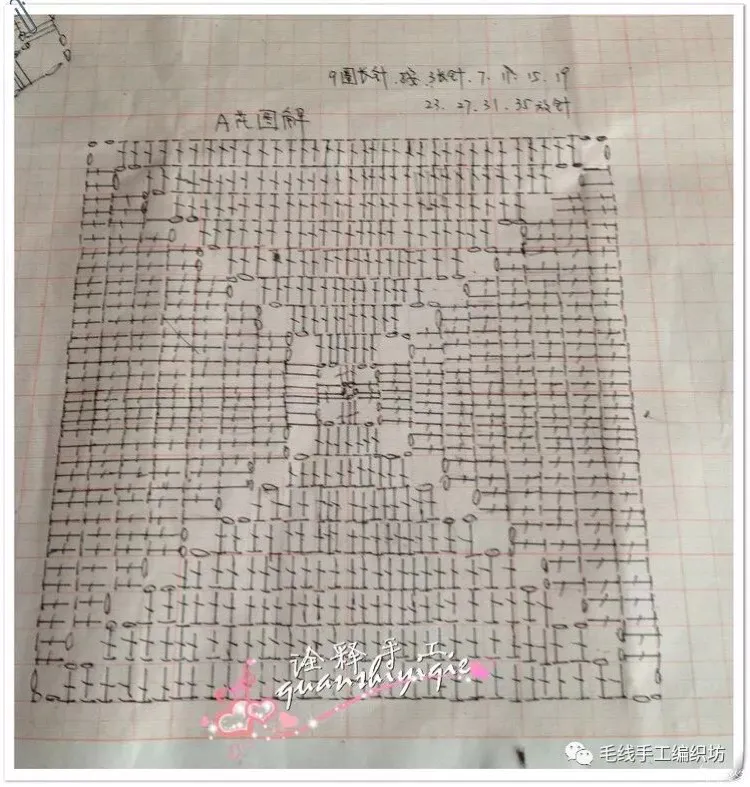 9圈长针.按.3长针.7.11.15.19
23.27.31.35放针
A花图解
诠释手工
quanshiyigie
毛线手工编织坊